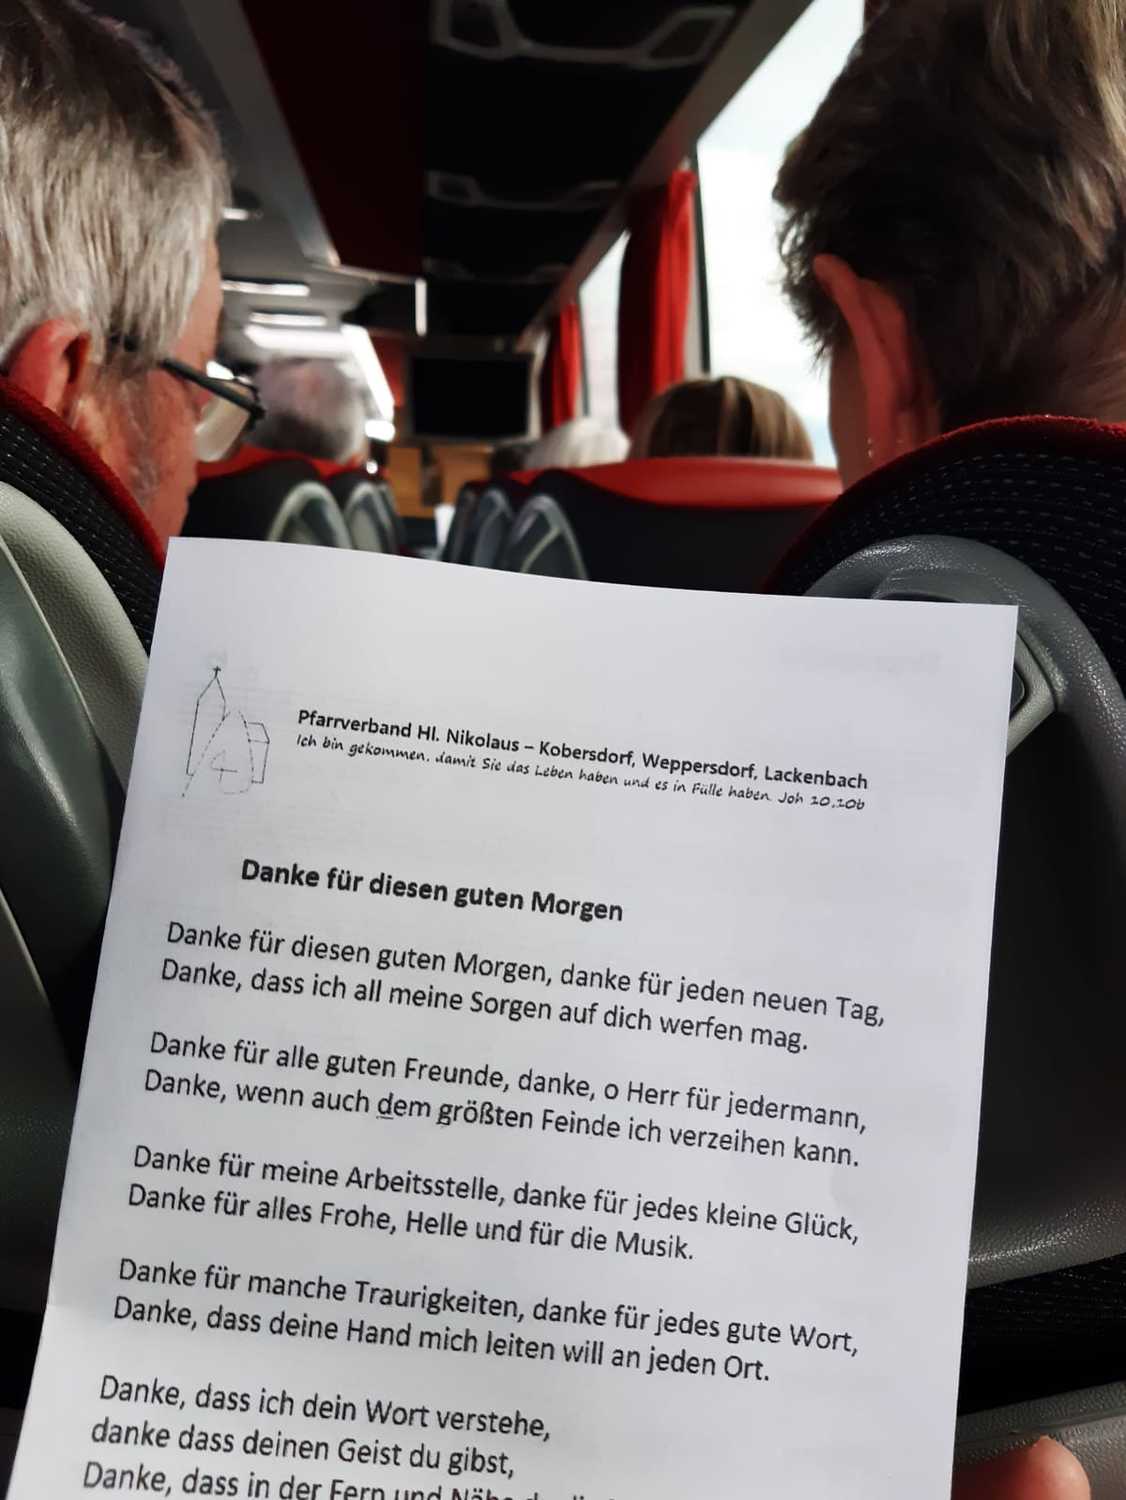 Pfarrverband Hl. Nikolaus – Kobersdorf, Weppersdorf, Lackenbach
Ich bin gekommen, damit Sie das Leben haben und es in Fülle haben. Joh 10,10b
Danke für diesen guten Morgen
Danke für diesen guten Morgen, danke für jeden neuen Tag,
Danke, dass ich all meine Sorgen auf dich werfen mag.
Danke für alle guten Freunde, danke, o Herr für jedermann,
Danke, wenn auch dem größten Feinde ich verzeihen kann.
Danke für meine Arbeitsstelle, danke für jedes kleine Glück,
Danke für alles Frohe, Helle und für die Musik.
Danke für manche Traurigkeiten, danke für jedes gute Wort,
Danke, dass deine Hand mich leiten will an jeden Ort.
Danke, dass ich dein Wort verstehe,
danke dass deinen Geist du gibst,
Danke, dass in der Fern und Nähe